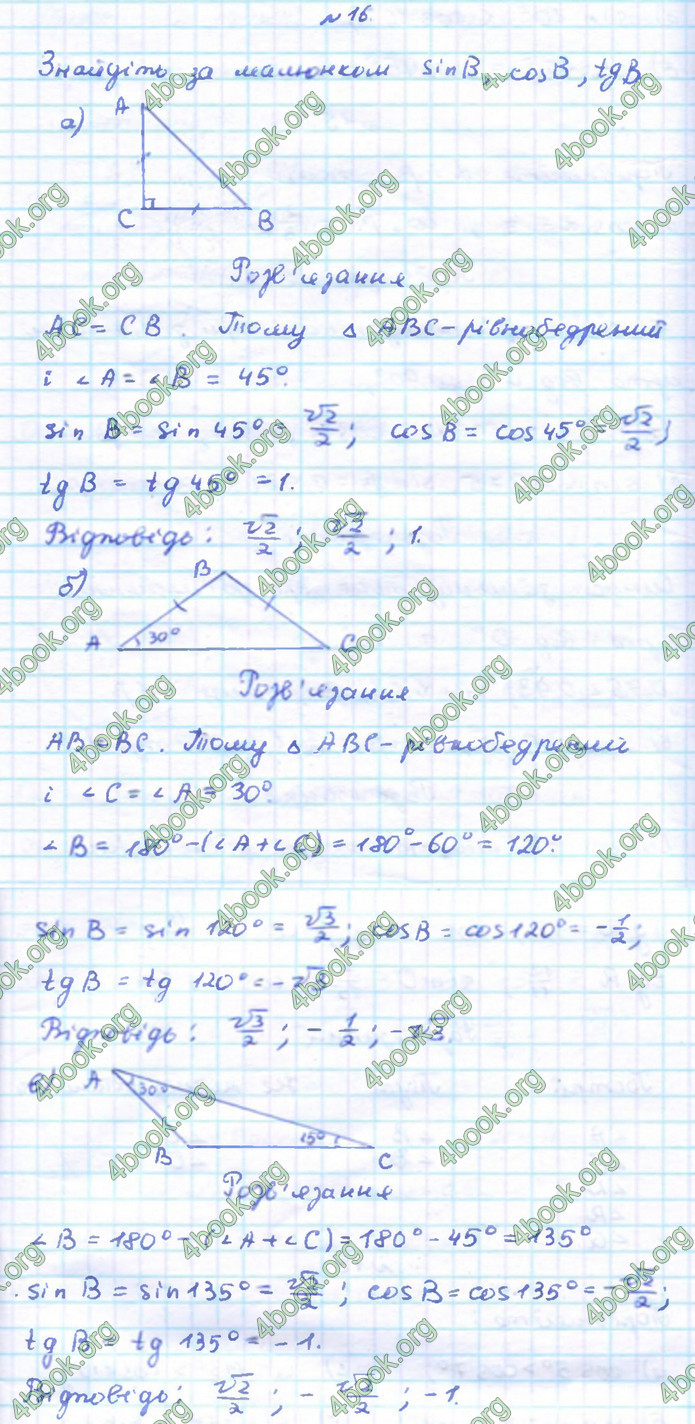 № 16.
Знайдіть за малюнком sin B, cos B, tg B
а)
A
C
B
Розв'язання
AC = CB. Тому △ ABC - рівнобедрений
і ∠A = ∠B = 45°.
sin B = sin 45° = √2/2; cos B = cos 45° = √2/2;
tg B = tg 45° = 1.
Відповідь: √2/2; √2/2; 1.
б)
B
A 30° C
Розв'язання
AB = BC. Тому △ ABC - рівнобедрений
і ∠C = ∠A = 30°.
∠B = 180° - (∠A + ∠C) = 180° - 60° = 120°.
sin B = sin 120° = √3/2; cos B = cos 120° = -1/2;
tg B = tg 120° = -√3
Відповідь: √3/2; -1/2; -√3.
в) A 30°
15°
B C
Розв'язання
∠B = 180° - (∠A + ∠C) = 180° - 45° = 135°
sin B = sin 135° = √2/2; cos B = cos 135° = -√2/2;
tg B = tg 135° = -1.
Відповідь: √2/2; -√2/2; -1.
4book.org